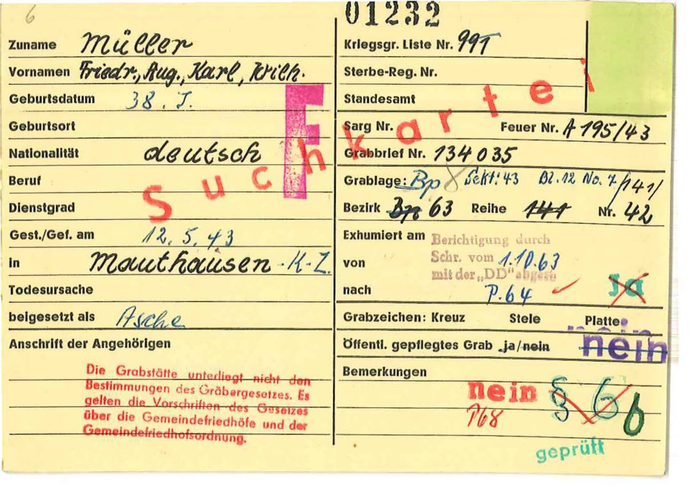 6
01232
Zuname Müller
Vornamen Friedr., Aug., Karl, Wilh.
Geburtsdatum 38. J.
Geburtsort
Nationalität deutsch
Beruf
Dienstgrad
Gest./Gef. am 12.5.43
in Mauthausen - K-Z.
Todesursache
beigesetzt als Asche
Anschrift der Angehörigen
Die Grabstätte unterliegt nicht den
Bestimmungen des Gräbergesetzes. Es
gelten die Vorschriften des Gesetzes
über die Gemeindefriedhöfe und der
Gemeindefriedhofsordnung.
F
Suchkartei
Kriegsgr. Liste Nr. 991
Sterbe-Reg. Nr.
Standesamt
Sarg Nr. Feuer Nr. A 195/43
Grabbrief Nr. 134035
Grablage: Bp 8 Sekt: 43 Bl. 12 No. 7/141/
Bezirk Bp 63 Reihe 141 Nr. 42
Exhumiert am
von
nach P.64
Berichtigung durch
Schr. vom 1.10.63
mit der „DD" abgest.
Ja
Grabzeichen: Kreuz Stele Platte
nein
Öffentl. gepflegtes Grab ja/nein nein
Bemerkungen
nein § 6 b
3
P68
geprüft